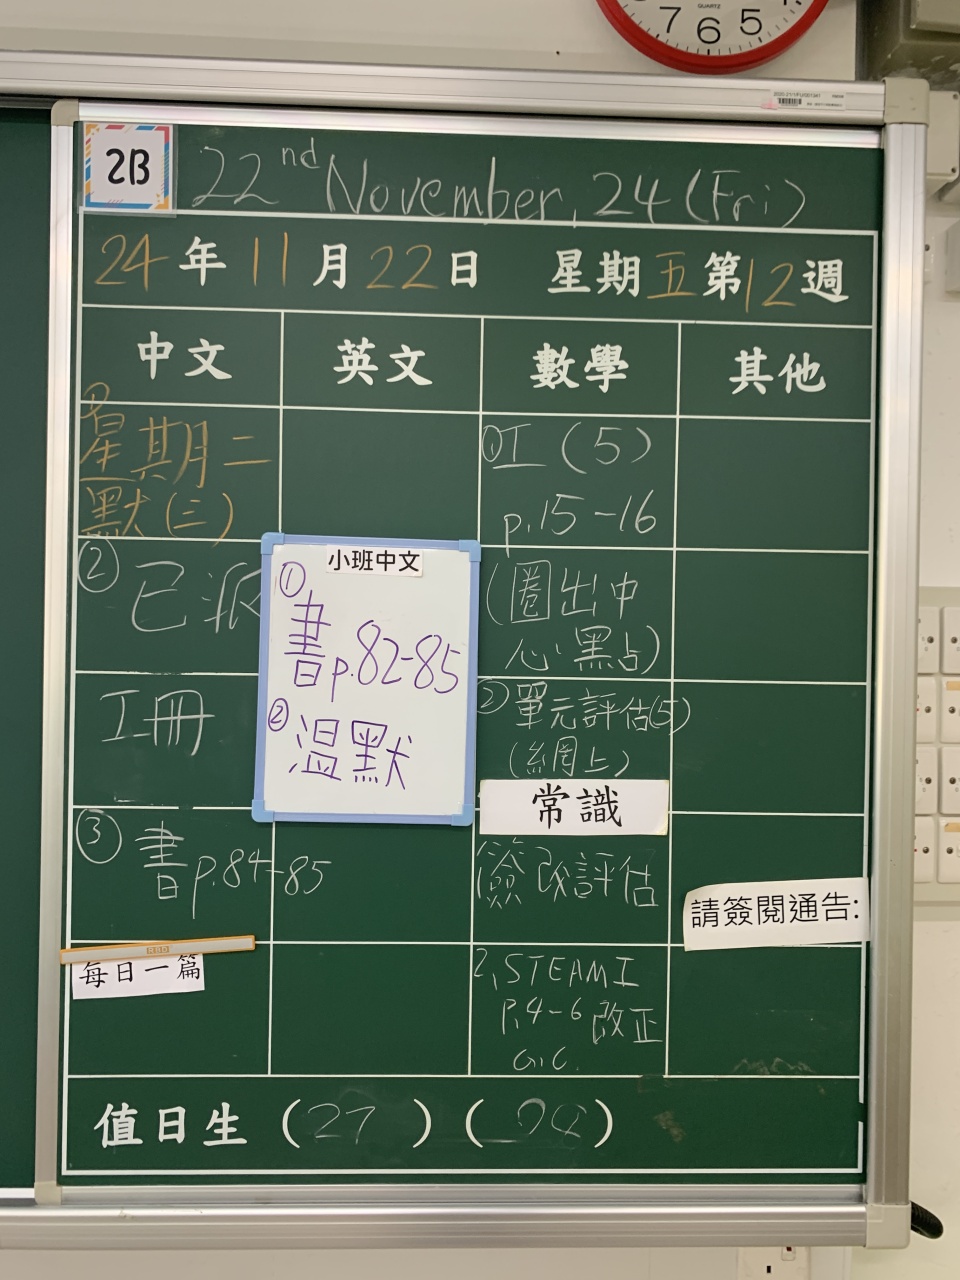 7 6 5
QUARTZ
2B
22nd November, 24 (Fri)
24年11月22日 星期五第12週
中文
英文
數學
其他
星期二
默(三)
② 已派
工冊
③ 書p.84-85
每日一篇
小班中文
① 書p.82-85
② 溫默
① 工(5)
p.15-16
(圈出中
心點占)
② 單元評估(5)
(網上)
常識
簽改評估
2, STEAM工
p.4-6 改正
G.C.
請簽閱通告:
值日生 (27) ( )